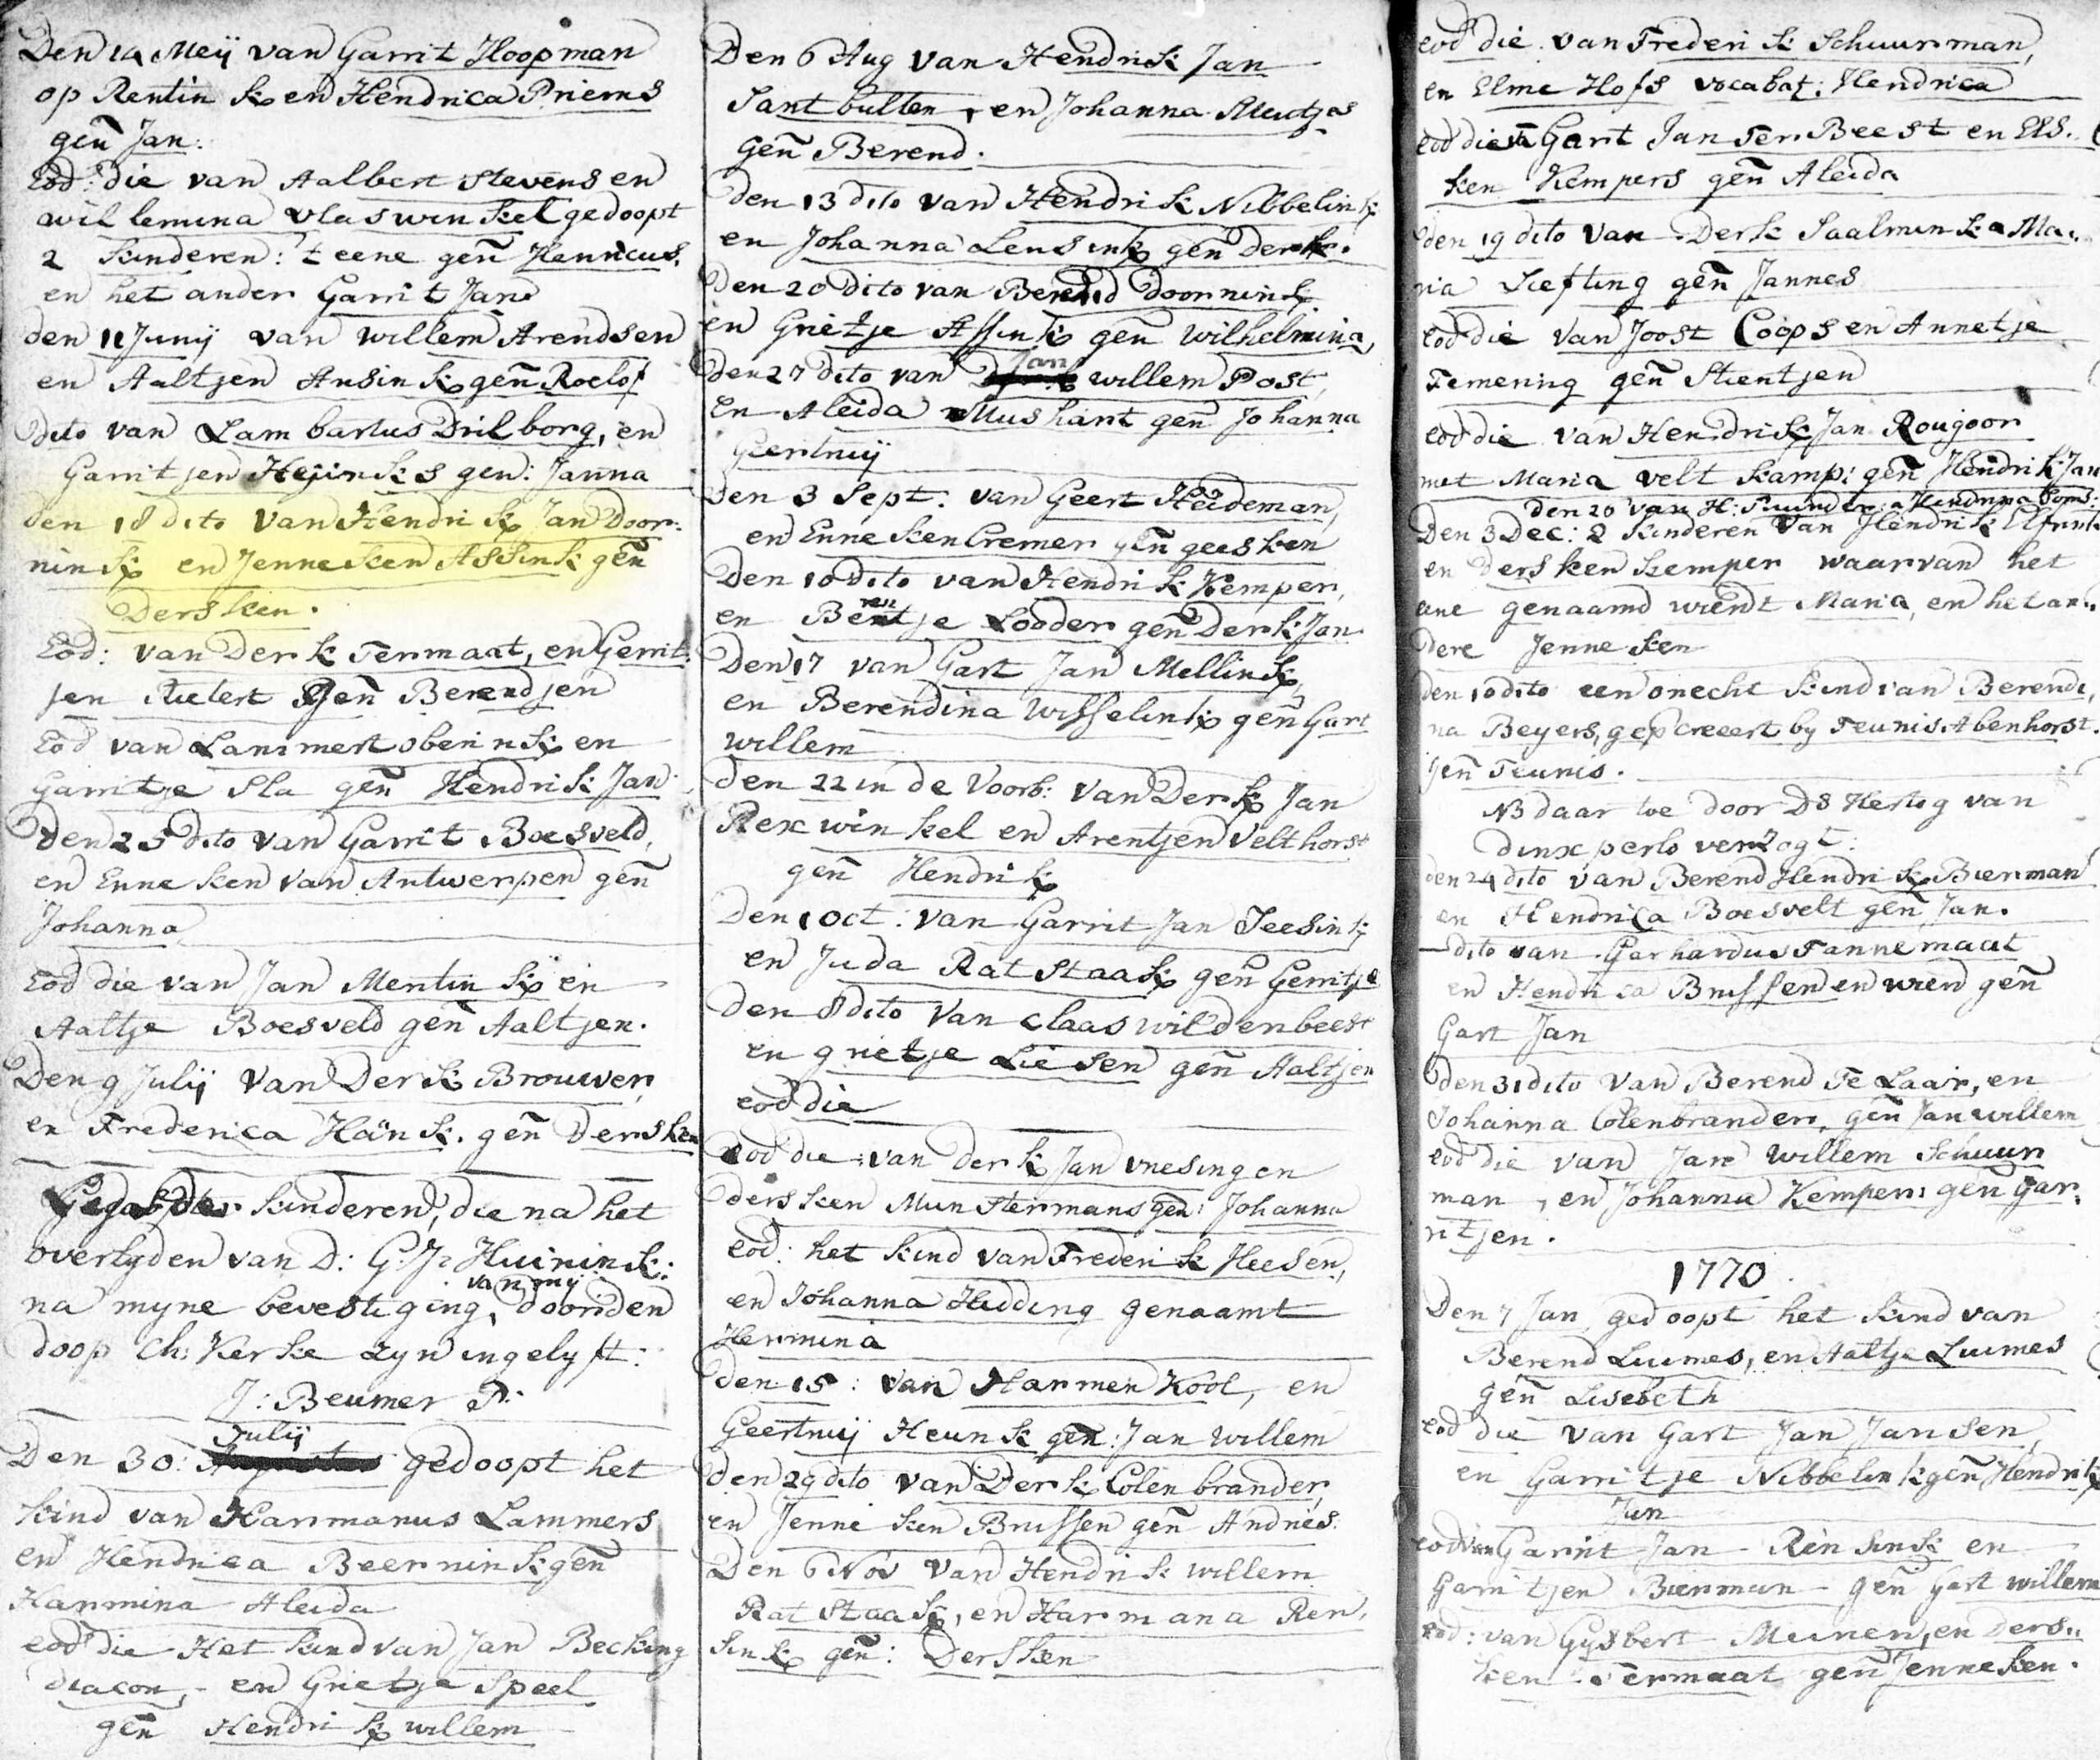 Den 14 Meij van Garrit Hoopman
op Rentink en Hendrica Priems
gen̄ Jan.
Eod: die van Aalbert Stevens en
willemina vlaswinkel gedoopt
2 kinderen: 't eene gen̄ Henricus.
en het ander Garrit Jan
den 11 Junij van willem Arendsen
en Aaltjen Ansink gen̄ Roelof
dito van Lambartus Drilborg, en
Garritjen Heijinks gen: Janna
den 18 dito van Hendrik Jan Door:
nink en Jenneken Assink gen̄
Dersken.
Eod: van Derk Termaat, en Gerrit:
jen Rietert gen̄ Berendjen
Eod van Lammert obenink en
Garritje Sla gen̄ Hendrik Jan
Den 25 dito van Garrit Boesveld,
en Enneken van Antwerpen gen̄
Johanna
Eod die van Jan Mentink en
Aaltje Boesveld gen̄ Aaltjen.
Den 9 Julij van Derk Brouwer,
en Frederica Hänk. gen̄ Dersken
Gedoopte kinderen, die na het
overlyden van D: G: J: Huinink:
van my
na myne bevestiging, door den
doop Ch: Kerke zyn ingelyft:
J: Beumer P:
Julij
Den 30: gedoopt het
kind van Harmanus Lammers
en Hendrica Beernink gen̄
Harmina Aleida
eod die Het kind van Jan Becking
diacon, en Grietje Speel
gen̄ Hendrik willem
Den 6 Aug van Hendrik Jan
Santbulten, en Johanna Meutjes
gen̄ Berend.
den 13 dito van Hendrik Nibbelink
en Johanna Lensink gen̄ Derk.
den 20 dito van Berend Doornink
en Grietje Assink gen̄ wilhelmina,
Jan
den 27 dito van willem Post,
En Aleida Mushart gen̄ Johanna
Geertruij
den 3 Sept: van Geert Heideman,
en Enneken Cremer gen̄ geesken
Den 10 dito van Hendrik Kemper,
en Berentje Lodder gen̄ Derk Jan
Den 17 van Gart Jan Mellink,
en Berendina Wisselink gen̄ Gart
willem
den 22 in de Voorb: van Derk Jan
Rexwinkel en Arentjen Velthorst
gen̄ Hendrik
Den 1 Oct: van Garrit Jan Teesink
en Juda Ratstaak gen̄ Gerritje
den 8 dito van Claas wildenbeest
en grietje Liesen gen̄ Aaltjen
eod die
Eod die van derk Jan vriesing en
dersken Munstermans gen: Johanna
eod: het kind van Frederik Heesen,
en Johanna Hidding genaamt
Hermina
den 15: van Harmen Kool, en
Geertruij Heunk gen: Jan willem
den 29 dito van Derk Colenbrander,
en Jenneken Brussen gen̄ Andries.
Den 6 Nov van Hendrik willem
Ratstaak, en Harmana Ren,
sink gen̄: Dersken
eod die van Frederik Schuurman,
en Elme Hofs vocabat: Hendrica
eod die Gart Jan ter Beest en Els.
ken Kempers gen̄ Aleida
den 19 dito van Derk Saalmink a Ma..
ria Siefting gen̄ Jannes
eod die van Joost Coops en Annetje
Temening gen̄ Stientjen
eod die van Hendrik Jan Rougoor
met Maria veltkamp: gen̄ Hendrik Jan
den 20 van H: a Hendrina
Den 3 Dec: 2 kinderen van Hendrik Elfrink
en dersken kemper waarvan het
eene genaamd wierdt Maria, en het an..
dere Jenneken
den 10 dito een onecht kind van Berendi,
na Beyers, geprocreeert by Teunis Abenhorst.
gen̄ Teunis.
NB daar toe door Ds Hertog van
dinxperlo verzogt:
den 24 dito van Berend Hendrik Bierman
en Hendrica Boesvelt gen̄ Jan.
dito van Garhardus Tannemaat
en Hendrica Brussen en wierd gen̄
Gart Jan
den 31 dito van Berend Te Laar, en
Johanna Colenbrander, gen̄ Jan willem
eod die van Jan willem Schuur
man, en Johanna Kemper: gen̄ Gar.
ritjen.
1770
Den 7 Jan gedoopt het kind van
Berend Luimes, en Aaltje Luimes
gen̄ Lisebeth
eod die van Gart Jan Jansen,
en Garritje Nibbelink gen̄ Hendrik
Jan
eod van Garrit Jan Rensink en
Garritjen Bierman gen̄ Gart willem
eod: van Gysbert Meinen, en Ders..
ken Termaat gen̄ Jenneken.